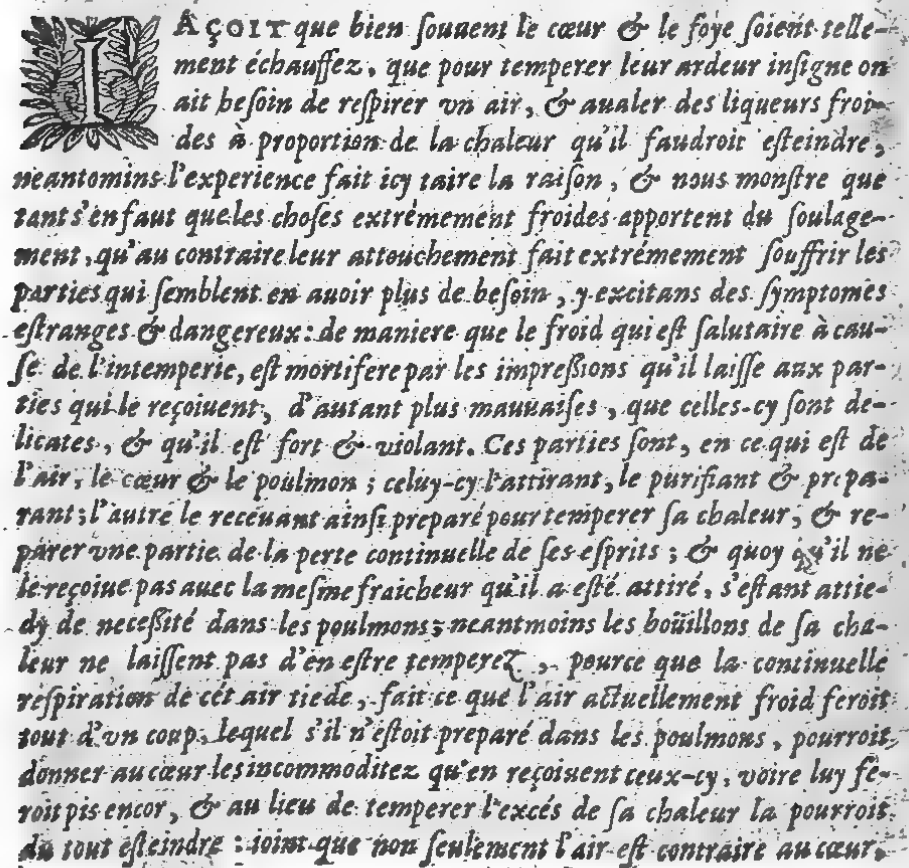 IAÇOIT que bien ſouuent le cœur & le foye ſoient telle-
ment échauffez, que pour temperer leur ardeur inſigne on
ait beſoin de reſpirer vn air, & aualer des liqueurs froi-
des à proportion de la chaleur qu'il faudroit eſteindre,
neantomins l'experience fait icy taire la raiſon, & nous monſtre que
tant s'en faut que les choſes extrémement froides apportent du ſoulage-
ment, qu'au contraire leur attouchement fait extrémement ſouffrir les
parties qui ſemblent en auoir plus de beſoin, y excitans des ſymptomes
eſtranges & dangereux: de maniere que le froid qui eſt ſalutaire à cau-
ſe de l'intemperie, eſt mortifere par les impreſſions qu'il laiſſe aux par-
ties qui le reçoiuent, d'autant plus mauuaiſes, que celles-cy ſont de-
licates, & qu'il eſt fort & violant. Ces parties ſont, en ce qui eſt de
l'air, le cœur & le poulmon; celuy-cy l'attirant, le purifiant & prepa-
rant; l'autre le receuant ainſi preparé pour temperer ſa chaleur, & re-
parer vne partie de la perte continuelle de ſes eſprits; & quoy qu'il ne
le reçoiue pas auec la meſme fraicheur qu'il a eſté attiré, s'eſtant attie-
dy de neceſſité dans les poulmons; neantmoins les boüillons de ſa cha-
leur ne laiſſent pas d'en eſtre temperez, pource que la continuelle
reſpiration de cét air tiede, fait ce que l'air actuellement froid feroit
tout d'vn coup, lequel s'il n'eſtoit preparé dans les poulmons, pourroit
donner au cœur les incommoditez qu'en reçoiuent ceux-cy, voire luy fe-
roit pis encor, & au lieu de temperer l'excés de ſa chaleur la pourroit
du tout eſteindre: ioint que non ſeulement l'air eſt contraire au cœur,